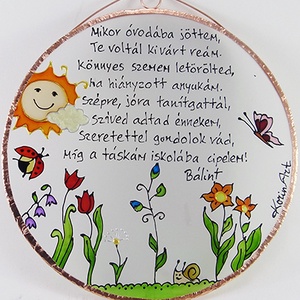 Mikor óvodába jöttem,
Te voltál ki várt reám.
Könnyes szemem letörölted,
ha hiányzott anyukám.
Szépre, jóra tanítgattál,
Szíved adtad énnekem,
Szeretettel gondolok rád,
Míg a táskám iskolába cipelem!
Bálint
KorinArt